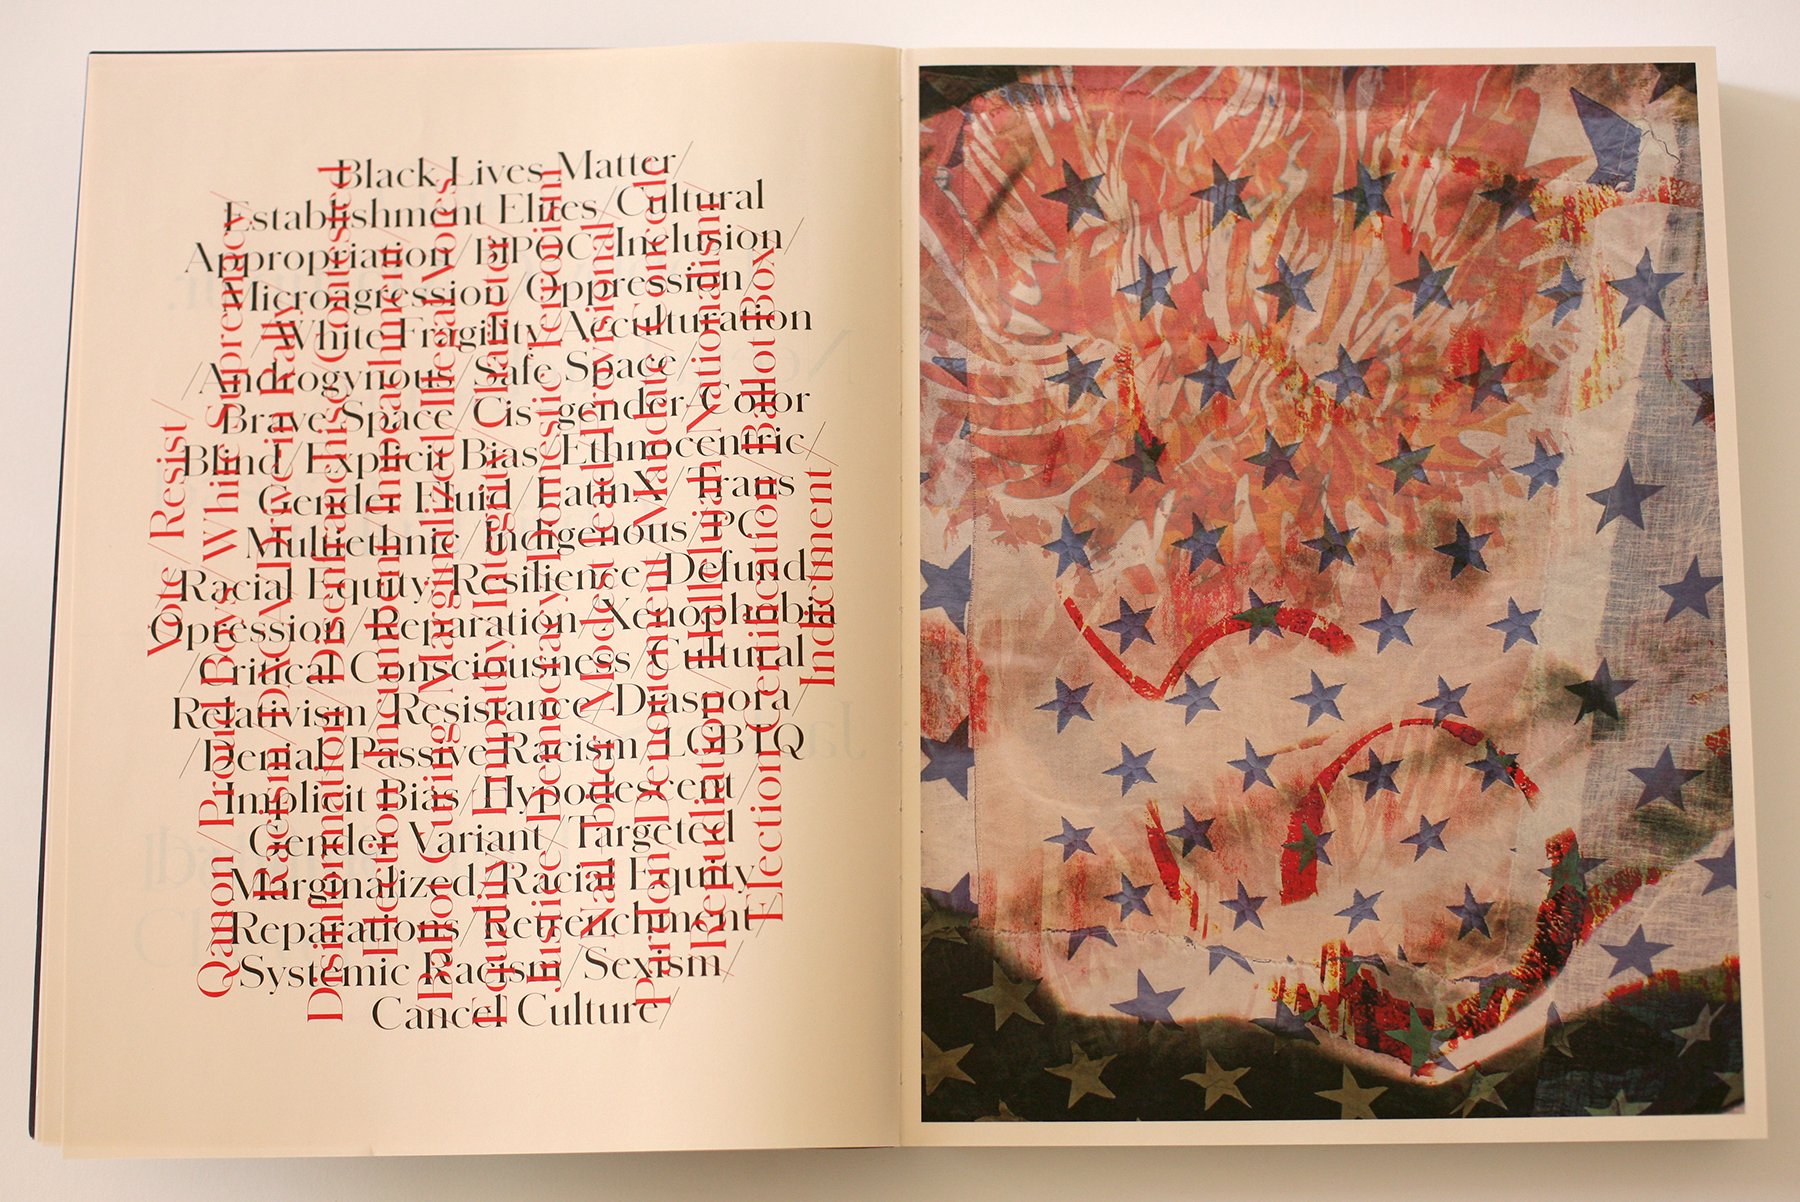 Black Lives Matter/
Establishment Elites/Cultural
Appropriation/BIPOC/Inclusion/
Microagression/Oppression/
/White Fragility/Acculturation
/Androgynous/Safe Space/
Brave Space/Cis-gender/Color
Blind/Explicit Bias/Ethnocentric/
Gender Fluid/LatinX/Trans
Multiethnic/Indigenous/PC
Racial Equity/Resilience/Defund/
Opression/Reparation/Xenophobia
/Critical Consciousness/Cultural
Relativism/Resistance/Diaspora/
/Denial/Passive Racism/LGBTQ
Implicit Bias/Hypodescent/
Gender Variant/Targeted
Marginalized/Racial Equity
Reparations/Retrenchment
Systemic Racism/Sexism/
Cancel Culture/
Vote/Resist/
Qanon/Proud Boys/White Supremacy/
Racism Rally
Disinformation/Disenfranchise
Election/Incumbent/Impeachment
Ballot Curing/Marginalized/Illegal Votes/
Equality Integrity
Justice/Democracy/Domestic Terrorism
Nail-biter/Modest lead/Provisional
Mandate/Concede
Repudiation Hallelujah/Nationalism
Election Certification/Ballot Box
Indictment/